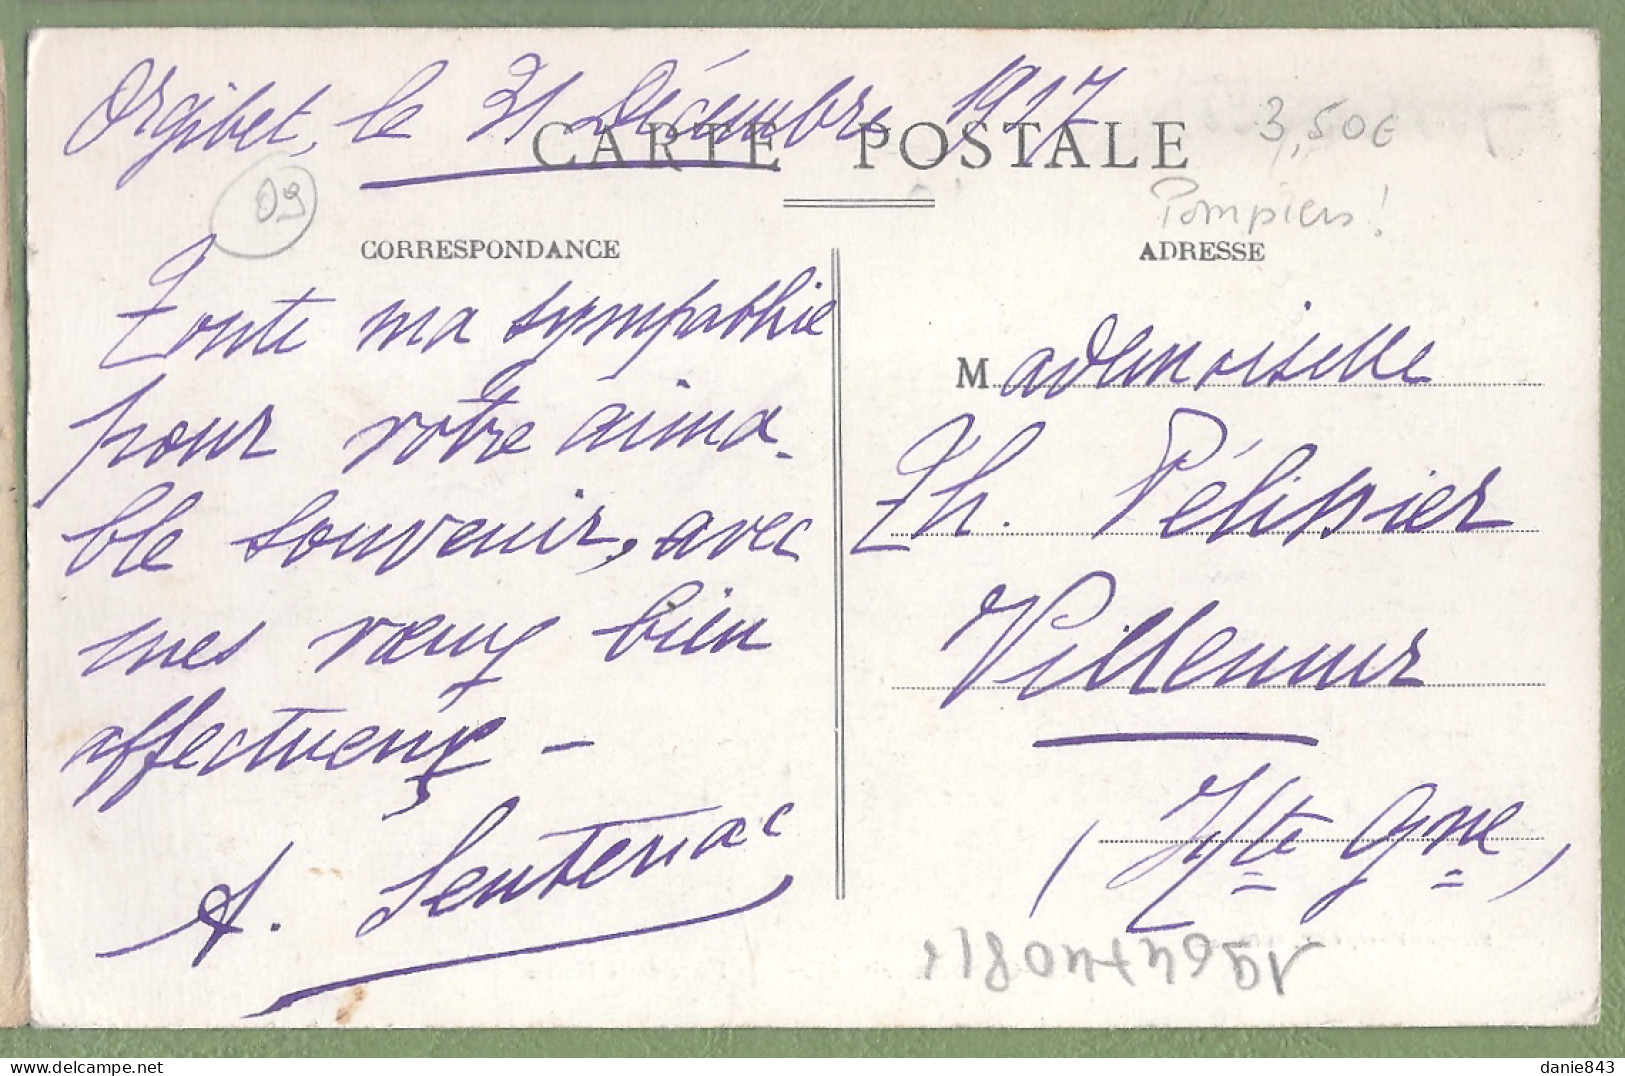 Orgibet, le 31 Décembre 1917
CARTE POSTALE
3,50€
Pompiers!
09
CORRESPONDANCE
ADRESSE
Toute ma sympathie
pour votre aima-
ble souvenir, avec
mes vœux bien
affectueux —
A. Sentenac
Mademoiselle
Th. Pélissier
Villemur
(Hte Gne)
danie843